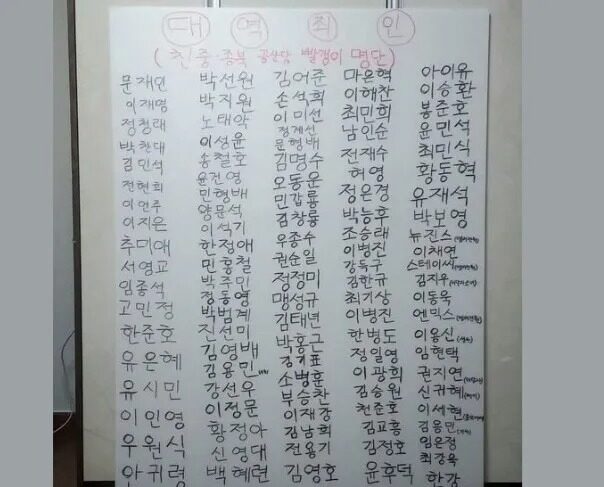 대 역 죄 인
( 친중·종북 공산당 빨갱이 명단)
문재인 박선원 김어준 마은혁 아이유
이재명 박지원 손석희 이해찬 이승환
정청래 노태악 이미선 최민희 봉준호
박찬대 이성윤 정계선 남인순 윤민석
김민석 송철호 문형배 전재수 최민식
전현희 윤건영 김명수 허영 황동혁
이언주 민형배 오동운 정은경 유재석
이지은 양문석 민갑룡 박능후 박보영
추미애 이석기 김창룡 조승래 뉴진스
서영교 한정애 우종수 이병진 이채연
임종석 민홍철 권순일 강득구 스테이시
고민정 박주민 정정미 김한규 김지우
한준호 정동영 맹성규 최기상 이동욱
유은혜 박범계 김태년 이병진 엔믹스
유시민 진선미 박홍근 한병도 이용신
이인영 김영배 김기표 정일영 임현택
우원식 김용민 소병훈 이광희 권지연
안귀령 강선우 부승찬 김승원 신귀혜
이정문 이재강 천준호 이세현
황정아 김남희 김교흥 김용민
신영대 전용기 김정호 임은정
백혜련 김영호 윤후덕 최강욱
한강